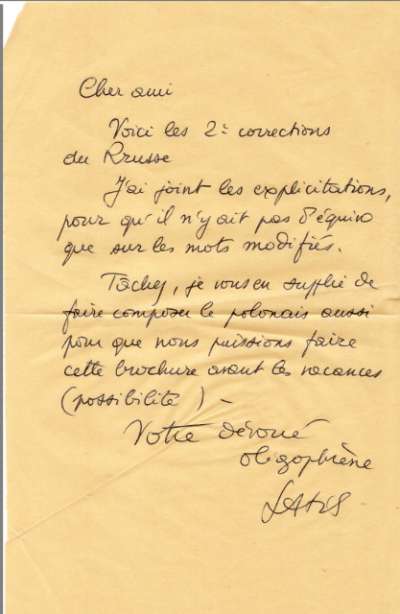 Cher ami
Voici les 2è corrections
du Rrusse
J'ai joint les explicitations,
pour qu'il n'y ait pas d'équivo
que sur les mots modifiés.
Tâchez, je vous en supplie de
faire composer le polonais aussi
pour que nous puissions faire
cette brochure avant les vacances
(possibilité ) –
Votre dévoué
oligophrène
LATIS